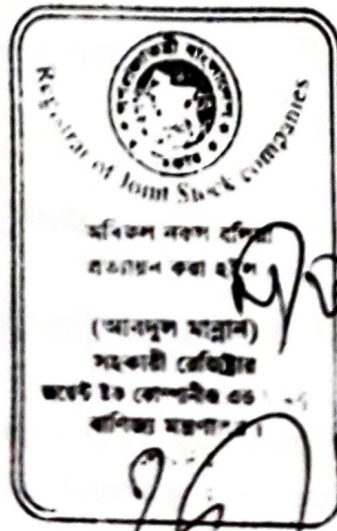 গণপ্রজাতন্ত্রী বাংলাদেশ
সরকার
Registrar of Joint Stock companies
অবিকল নকল বলিয়া
প্রত্যায়ন করা হইল
(আবদুল মান্নান)
সহকারী রেজিষ্ট্রার
জয়েন্ট ষ্টক কোম্পানীজ এন্ড
বাণিজ্য মন্ত্রণালয়।